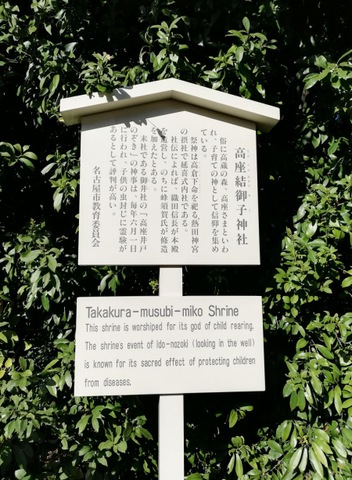 高座結御子神社
俗に高蔵の森、高座さまといわ
れ、子育ての神として信仰を集め
ている。
祭神は高倉下命を祀る熱田神宮
の摂社で延喜式内社である。
社伝によれば、織田信長が本殿
を造営し、のちに蜂須賀氏が修造
を加えたとある。
末社である御井社の「高座井戸
のぞき」の神事は、毎年六月一日
に行われ、子供の虫封じに霊験が
あるとして評判が高い。
名古屋市教育委員会
Takakura-musubi-miko Shrine
This shrine is worshiped for its god of child rearing.
The shrine's event of Ido-nozoki (looking in the well)
is known for its sacred effect of protecting children
from diseases.